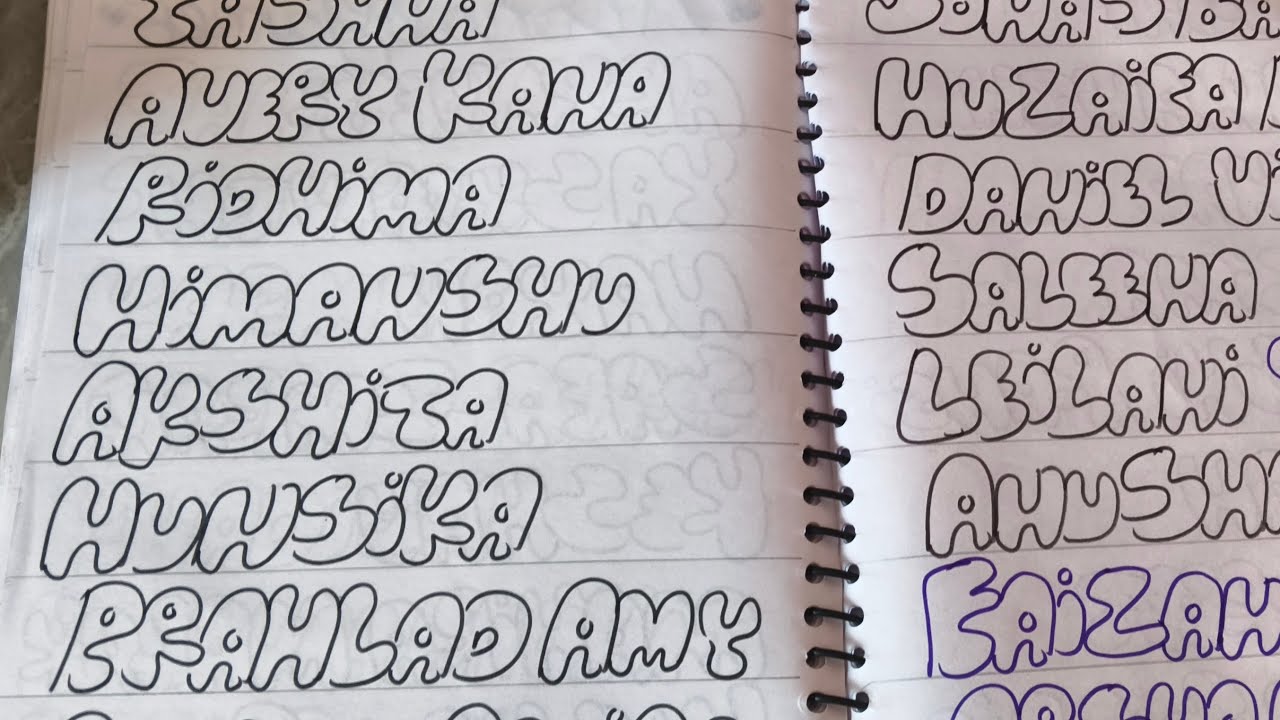 AVERY KANA
RIDHIMA
HIMANSHU
AKSHITA
HUNSIKA
PRAHLAD AMY
JONAS
HUZAIFA
DANIEL VI
SALEENA
LEILANI
ANUSH
FAIZAN